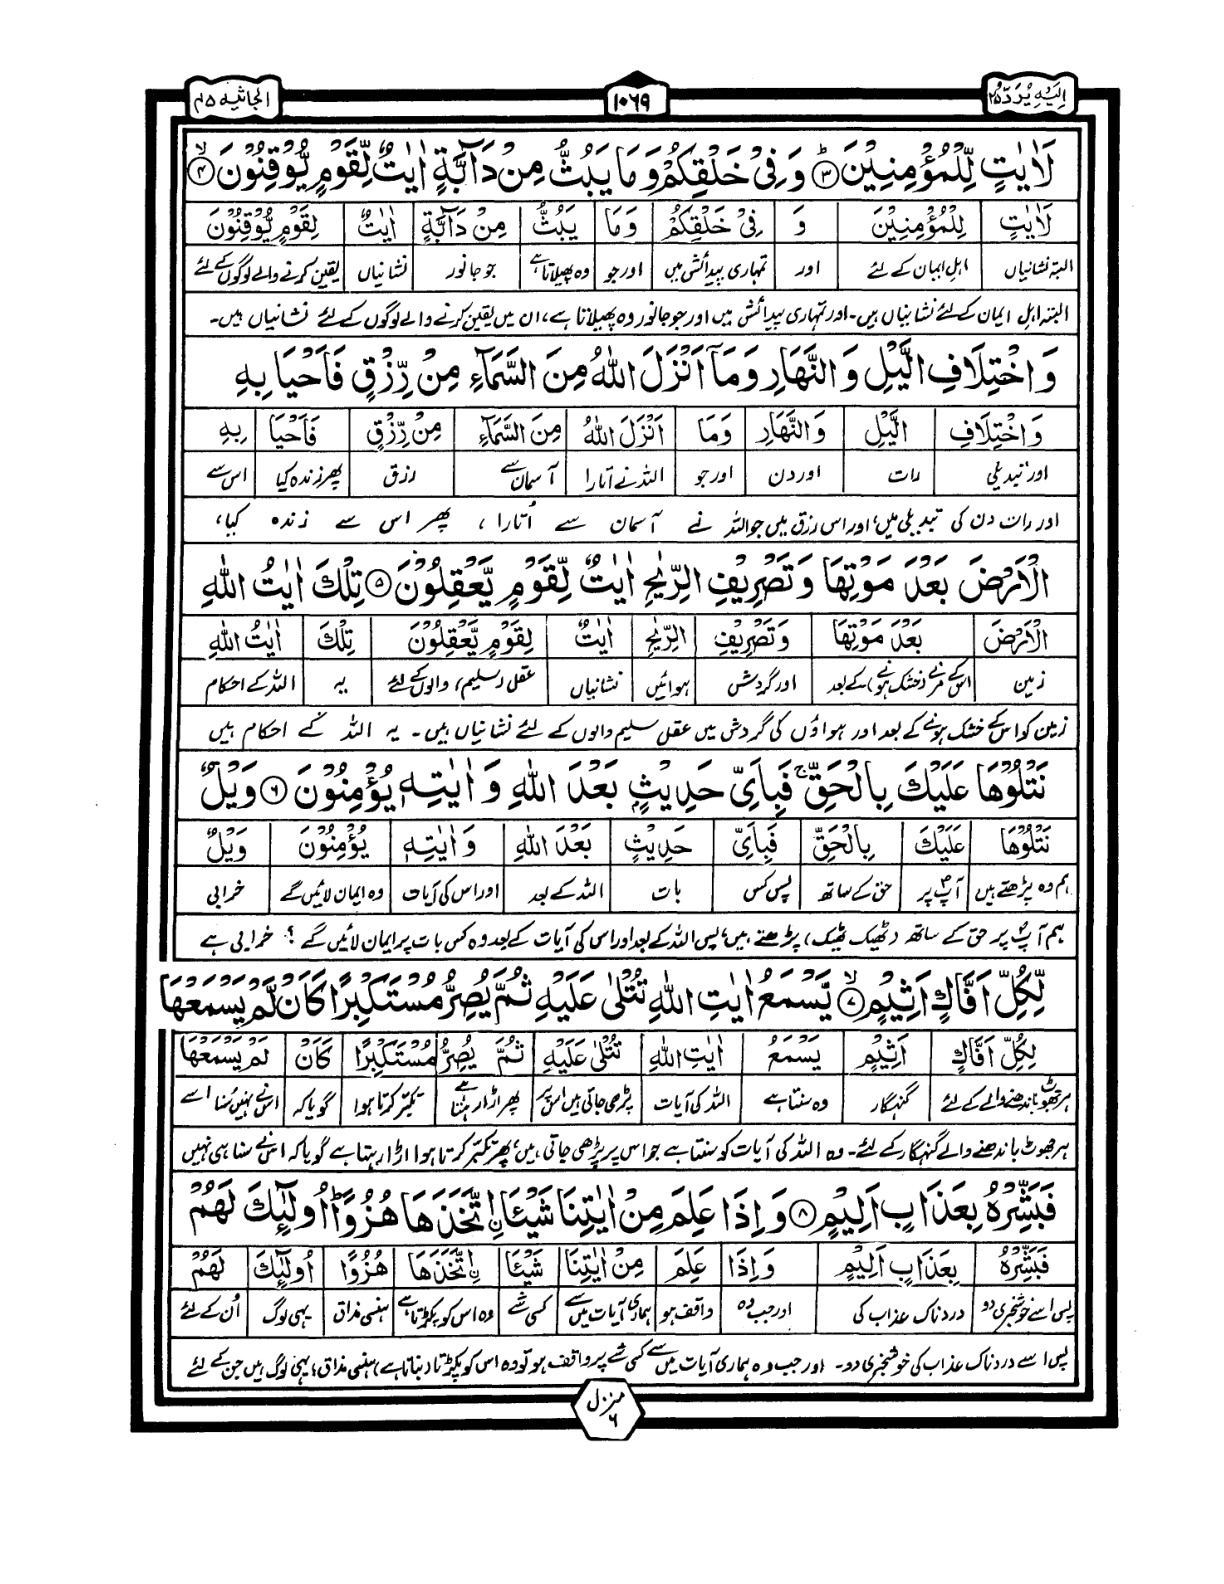 اِلَیْہِ یُرَدُّ ۲۵
۱۰۶۹
الجاثیہ ۴۵
لَاٰیٰتٍ لِّلْمُؤْمِنِیْنَ ﴿۳﴾ؕ وَفِیْ خَلْقِكُمْ وَمَا یَبُثُّ مِنْ دَآبَّةٍ اٰیٰتٌ لِّقَوْمٍ یُّوْقِنُوْنَ ﴿۴﴾ۙ
لَاٰیٰتٍ لِلْمُؤْمِنِیْنَ وَ فِیْ خَلْقِكُمْ وَمَا یَبُثُّ مِنْ دَآبَّةٍ اٰیٰتٌ لِقَوْمٍ یُّوْقِنُوْنَ
البتہ نشانیاں اہل ایمان کے لئے اور تمہاری پیدائش میں اور جو وہ پھیلاتا ہے جو جانور نشانیاں یقین کرنے والے لوگوں کے لئے
البتہ اہل ایمان کے لئے نشانیاں ہیں۔ اور تمہاری پیدائش میں اور جو جانور وہ پھیلاتا ہے، ان میں یقین کرنے والے لوگوں کے لئے نشانیاں ہیں۔
وَاخْتِلَافِ الَّیْلِ وَالنَّهَارِ وَمَاۤ اَنْزَلَ اللّٰهُ مِنَ السَّمَآءِ مِنْ رِّزْقٍ فَاَحْیَا بِهِ
وَاخْتِلَافِ الَّیْلِ وَالنَّهَارِ وَمَا اَنْزَلَ اللّٰهُ مِنَ السَّمَآءِ مِنْ رِّزْقٍ فَاَحْیَا بِهِ
اور تبدیلی رات اور دن اور جو اللہ نے اتارا آسمان سے رزق پھر زندہ کیا اس سے
اور رات دن کی تبدیلی میں، اور اس رزق میں جو اللہ نے آسمان سے اُتارا، پھر اس سے زندہ کیا،
الْاَرْضَ بَعْدَ مَوْتِهَا وَتَصْرِیْفِ الرِّیٰحِ اٰیٰتٌ لِّقَوْمٍ یَّعْقِلُوْنَ ﴿۵﴾ تِلْكَ اٰیٰتُ اللّٰهِ
الْاَرْضَ بَعْدَ مَوْتِهَا وَتَصْرِیْفِ الرِّیٰحِ اٰیٰتٌ لِقَوْمٍ یَّعْقِلُوْنَ تِلْكَ اٰیٰتُ اللّٰهِ
زمین اس کے مرنے (خشک ہونے) کے بعد اور گردش ہوائیں نشانیاں عقل (سلیم) والوں کے لئے یہ اللہ کے احکام
زمین کو اس کے خشک ہونے کے بعد اور ہواؤں کی گردش میں عقل سلیم والوں کے لئے نشانیاں ہیں۔ یہ اللہ کے احکام ہیں
نَتْلُوْهَا عَلَیْكَ بِالْحَقِّ ۚ فَبِاَیِّ حَدِیْثٍۭ بَعْدَ اللّٰهِ وَاٰیٰتِهٖ یُؤْمِنُوْنَ ﴿۶﴾ وَیْلٌ
نَتْلُوْهَا عَلَیْكَ بِالْحَقِّ فَبِاَیِّ حَدِیْثٍ بَعْدَ اللّٰهِ وَاٰیٰتِهٖ یُؤْمِنُوْنَ وَیْلٌ
ہم وہ پڑھتے ہیں آپؐ پر حق کے ساتھ پس کس بات اللہ کے بعد اور اس کی آیات وہ ایمان لائیں گے خرابی
ہم آپؐ پر حق کے ساتھ (ٹھیک ٹھیک) پڑھتے ہیں، پس اللہ کے بعد اور اس کی آیات کے بعد وہ کس بات پر ایمان لائیں گے؟ خرابی ہے
لِّكُلِّ اَفَّاكٍ اَثِیْمٍ ﴿۷﴾ۙ یَّسْمَعُ اٰیٰتِ اللّٰهِ تُتْلٰی عَلَیْهِ ثُمَّ یُصِرُّ مُسْتَكْبِرًا كَاَنْ لَّمْ یَسْمَعْهَا
لِكُلِّ اَفَّاكٍ اَثِیْمٍ یَسْمَعُ اٰیٰتِ اللّٰهِ تُتْلٰی عَلَیْهِ ثُمَّ یُصِرُّ مُسْتَكْبِرًا كَاَنْ لَمْ یَسْمَعْهَا
ہر جھوٹ باندھنے والے کے لئے گنہگار وہ سنتا ہے اللہ کی آیات پڑھی جاتی ہیں اس پر پھر اڑا رہتا ہے تکبر کرتا ہوا گویا کہ اس نے نہیں سُنا اسے
ہر جھوٹ باندھنے والے گنہگار کے لئے۔ وہ اللہ کی آیات کو سنتا ہے جو اس پر پڑھی جاتی ہیں، پھر تکبر کرتا ہوا اڑا رہتا ہے گویا کہ اس نے سنا ہی نہیں
فَبَشِّرْهُ بِعَذَابٍ اَلِیْمٍ ﴿۸﴾ وَاِذَا عَلِمَ مِنْ اٰیٰتِنَا شَیْـًٔا ۨاتَّخَذَهَا هُزُوًا ؕ اُولٰٓئِكَ لَهُمْ
فَبَشِّرْهُ بِعَذَابٍ اَلِیْمٍ وَاِذَا عَلِمَ مِنْ اٰیٰتِنَا شَیْـًٔا ۨاتَّخَذَهَا هُزُوًا اُولٰٓئِكَ لَهُمْ
پس اسے خوشخبری دو دردناک عذاب کی اور جب وہ واقف ہو ہماری آیات میں سے کسی شے وہ اس کو پکڑتا ہے ہنسی مذاق یہی لوگ اُن کے لئے
پس اسے دردناک عذاب کی خوشخبری دو۔ اور جب وہ ہماری آیات میں سے کسی شے پر واقف ہو تو وہ اس کو پکڑتا (بناتا ہے) ہنسی مذاق، یہی لوگ ہیں جن کے لئے
منزل ۶